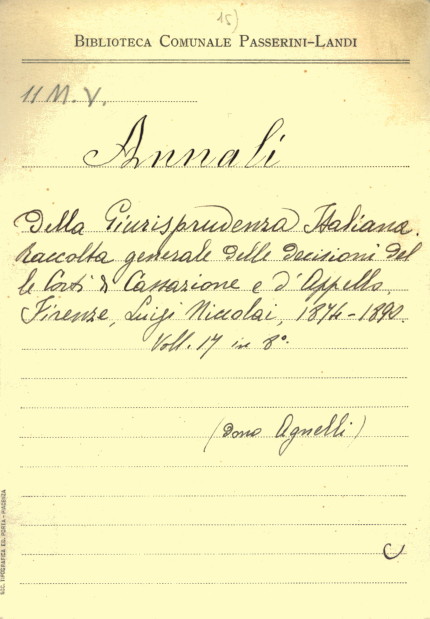 15)
BIBLIOTECA COMUNALE PASSERINI-LANDI
11 M. V.
Annali
Della Giurisprudenza Italiana.
Raccolta generale delle decisioni del
le Corti di Cassazione e d'Appello.
Firenze, Luigi Niccolai, 1874-1890.
Voll. 17 in 8º.
(dono Agnelli)
C
SOC. TIPOGRAFICA ED. PORTA - PIACENZA